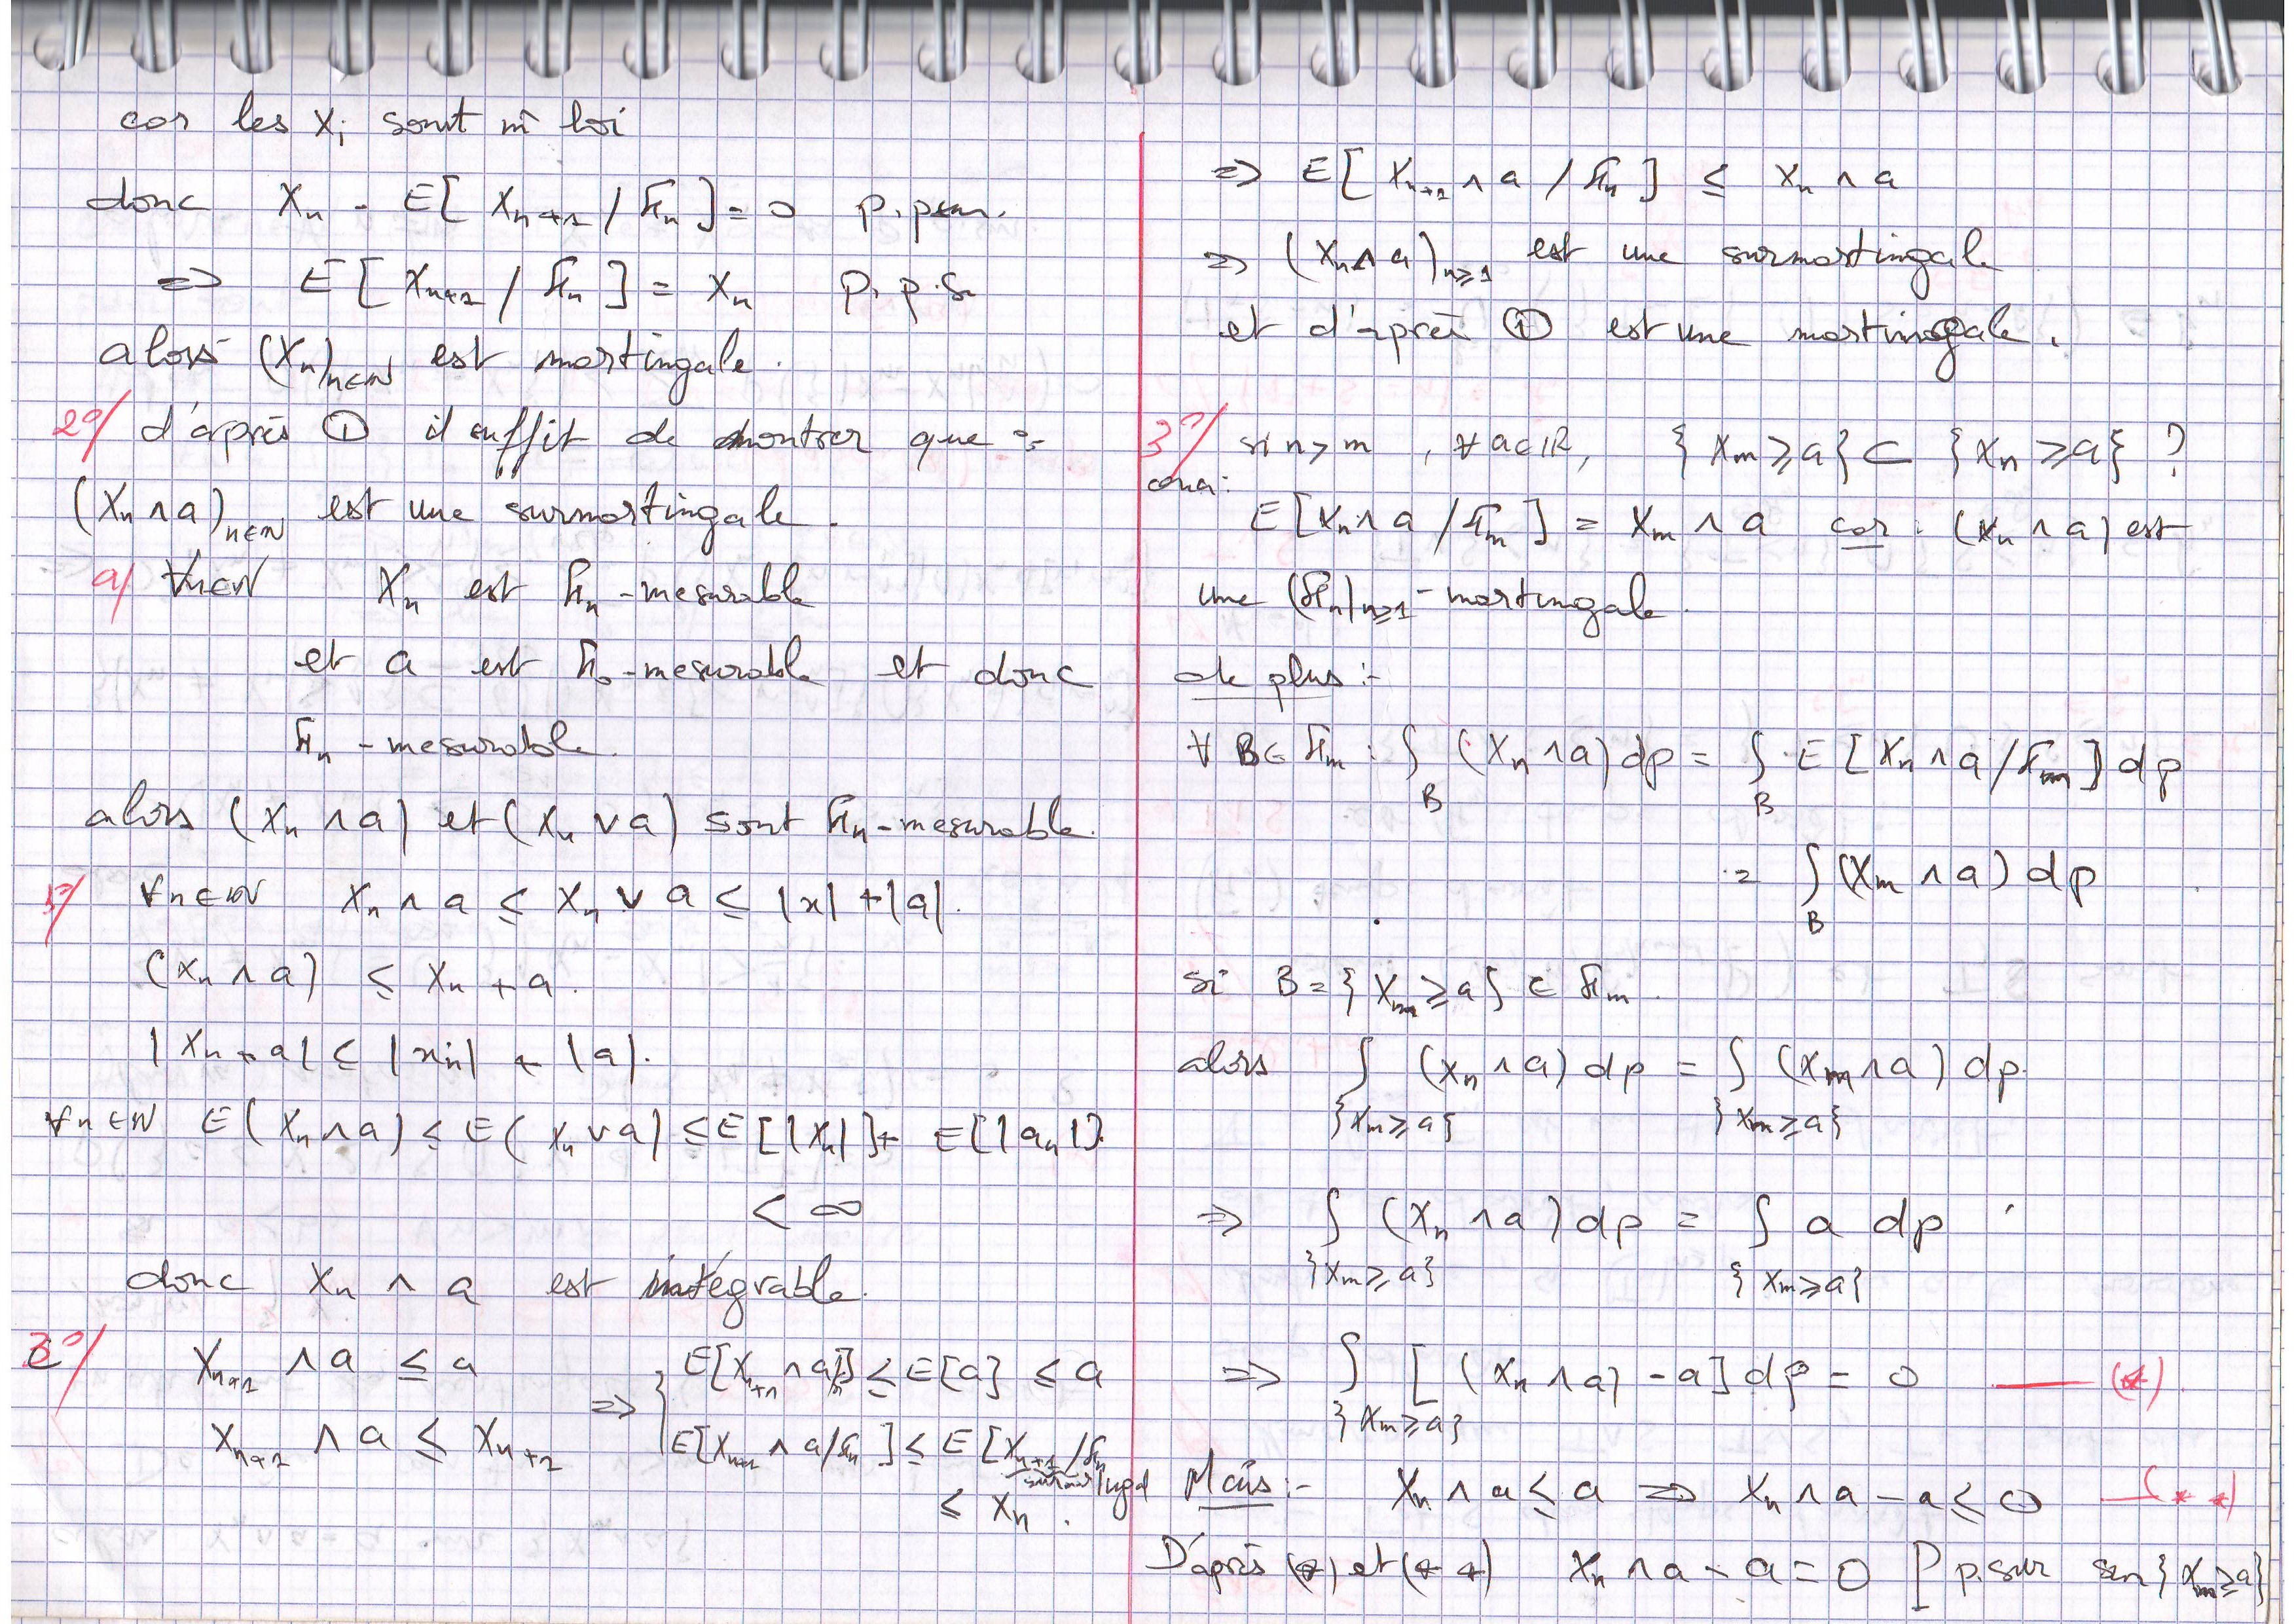 car les Xi sont m̂ loi
donc Xn - E[ Xn+1 / Fn ] = 0 p.pssur.
=> E[ Xn+1 / Fn ] = Xn p.p.s
alors (Xn)n∈N est martingale.
2°/ d'après ① il suffit de montrer que :
(Xn ∧ a)n∈N est une surmartingale.
a/ ∀n∈N Xn est Fn-mesurable
et a est F0-mesurable et donc
Fn-mesurable.
alors (Xn ∧ a) et (Xn ∨ a) sont Fn-mesurable.
b/ ∀n∈N Xn ∧ a ≤ Xn ∨ a ≤ |x| + |a|.
(Xn ∧ a) ≤ Xn + a.
|Xn + a| ≤ |xn| + |a|.
∀n∈N E(Xn ∧ a) ≤ E(Xn ∨ a) ≤ E[|Xn|] + E[|an|].
< ∞
donc Xn ∧ a est intégrable.
3°/ Xn+1 ∧ a ≤ a => { E[Xn+1 ∧ a/Fn] ≤ E[a] ≤ a
Xn+1 ∧ a ≤ Xn+1 E[Xn+1 ∧ a/Fn] ≤ E[Xn+1/Fn
≤ Xn.
=> E[ Xn+1 ∧ a / Fn ] ≤ Xn ∧ a
=> (Xn ∧ a)n≥1 est une surmartingale
et d'après ① est une martingale.
3°/ si n > m , ∀ a∈IR, {Xm ≥ a} ⊂ {Xn ≥ a} ?
ona:
E[Xn ∧ a / Fm] = Xm ∧ a car : (Xn ∧ a) est
une (Fn)n≥1-martingale.
de plus :-
∀ B∈ Fm : ∫B (Xn ∧ a) dp = ∫B E[Xn ∧ a/Fm] dp
= ∫B (Xm ∧ a) dp
si B = {Xm ≥ a} ∈ Fm.
alors ∫{Xm≥a} (Xn ∧ a) dp = ∫{Xm≥a} (Xm ∧ a) dp.
=> ∫{Xm≥a} (Xn ∧ a) dp = ∫{Xm≥a} a dp
=> ∫{Xm≥a} [(Xn ∧ a) - a] dp = 0 — (*).
Mais :- Xn ∧ a ≤ a => Xn ∧ a - a ≤ 0 — (**)
D'après (*) et (**) Xn ∧ a - a = 0 P p.sur sur {Xm ≥ a}